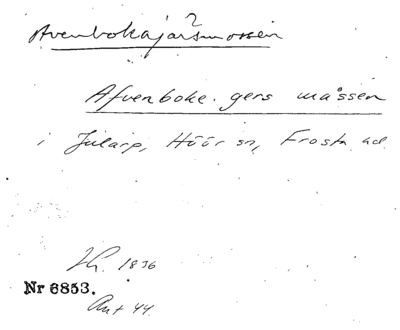 ?
Avenbokajärsmossen
Afvenboke. gers måssen
i Jularp, Höör sn, Frosta hd.
1836
Nr 6853.
Ant 44.